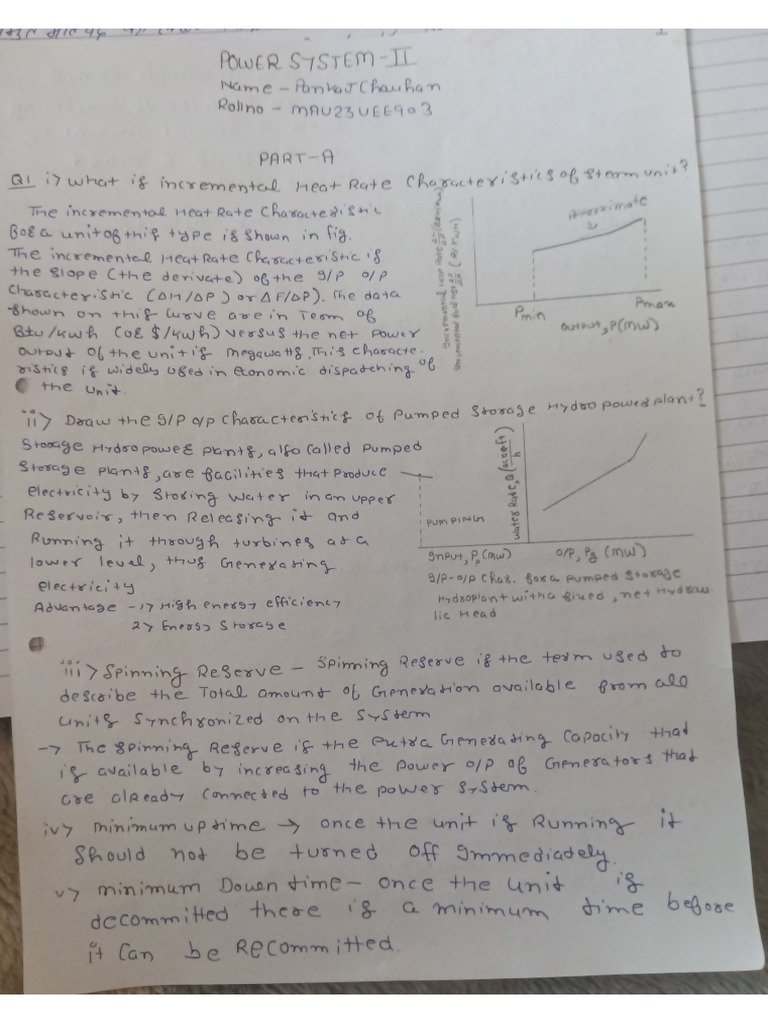 POWER SYSTEM-II
Name - Pankaj Chauhan
Rollno - MAU23UEE903
PART-A
Q1 i> What is incremental Heat Rate Characteristics of steam unit?
The incremental Heat Rate Characteristic
for a unit of this type is shown in fig.
The incremental Heat Rate Characteristic is
the slope (the derivate) of the I/P O/P
Characteristic (ΔH/ΔP) or ΔF/ΔP). The data
shown on this curve are in Term of
Btu/kwh (or $/kwh) versus the net Power
output of the unit is megawatts. This characte-
ristics is widely used in economic dispatching of
the unit.
Approximate
Pmin
Pmax
output, P(MW)
ii> Draw the I/P O/P Characteristics of Pumped Storage Hydro power plant?
Storage Hydropower plants, also called Pumped
Storage plants, are facilities that produce
electricity by storing water in an upper
Reservoir, then Releasing it and
Running it through turbines at a
lower level, thus Generating
electricity
Advantage - 1> High energy efficiency
2> Energy Storage
water Rate, Q (acreft/h)
PUMPING
Input, Pp (MW)
O/P, Pg (MW)
I/P-O/P Char. for a Pumped Storage
Hydroplant with a fixed, net Hydrau
lic Head
iii> Spinning Reserve - Spinning Reserve is the term used to
describe the Total amount of Generation available from all
units synchronized on the system
-> The Spinning Reserve is the extra Generating Capacity that
is available by increasing the Power O/P of Generators that
are already connected to the power system.
iv> minimum up time → once the unit is Running it
should not be turned off Immediately.
v> minimum Down time - once the unit is
decommitted there is a minimum time before
it can be Recommitted.